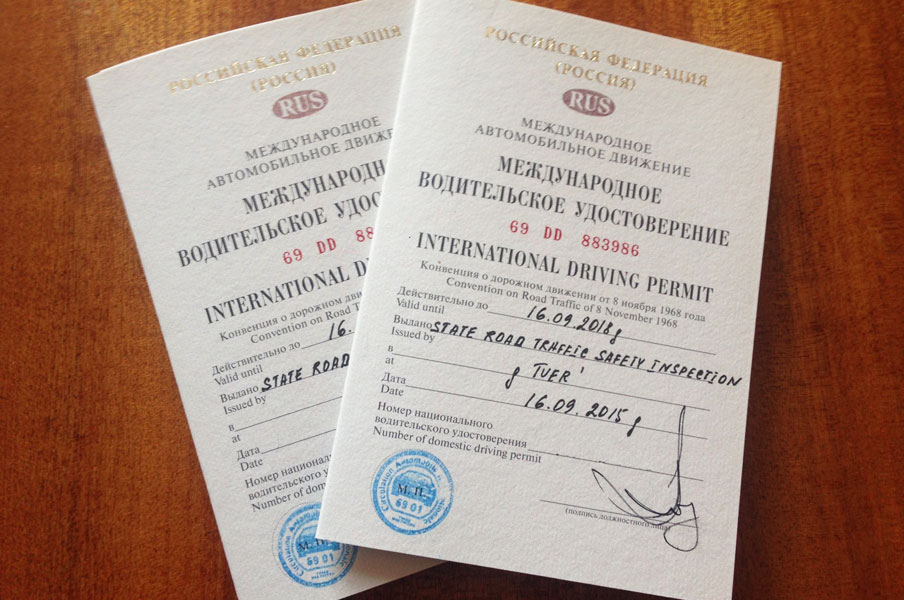 РОССИЙСКАЯ ФЕДЕРАЦИЯ
(РОССИЯ)
RUS
МЕЖДУНАРОДНОЕ
АВТОМОБИЛЬНОЕ ДВИЖЕ
МЕЖДУНАРОДН
ВОДИТЕЛЬСКОЕ УДОС
69 DD 88
INTERNATIONAL D
Конвенция о дорожном движ
Convention on Road Traf
Действительно до 16.
Valid until
Выдано STATE ROAD
Issued by
в
at
Дата
Date
Номер национально
водительского удосто
Number of dome
М. П.
69 01
РОССИЙСКАЯ ФЕДЕРАЦИЯ
(РОССИЯ)
RUS
МЕЖДУНАРОДНОЕ
АВТОМОБИЛЬНОЕ ДВИЖЕНИЕ
МЕЖДУНАРОДНОЕ
ВОДИТЕЛЬСКОЕ УДОСТОВЕРЕНИЕ
69 DD 883986
INTERNATIONAL DRIVING PERMIT
Конвенция о дорожном движении от 8 ноября 1968 года
Convention on Road Traffic of 8 November 1968
Действительно до 16.09.2018 г
Valid until
Выдано STATE ROAD TRAFFIC SAFETY INSPECTION
Issued by
в
at г TVER'
Дата 16.09.2015 г
Date
Номер национального
водительского удостоверения
Number of domestic driving permit
Circulation Automobile
М. П.
69 01
(подпись должностного лица)